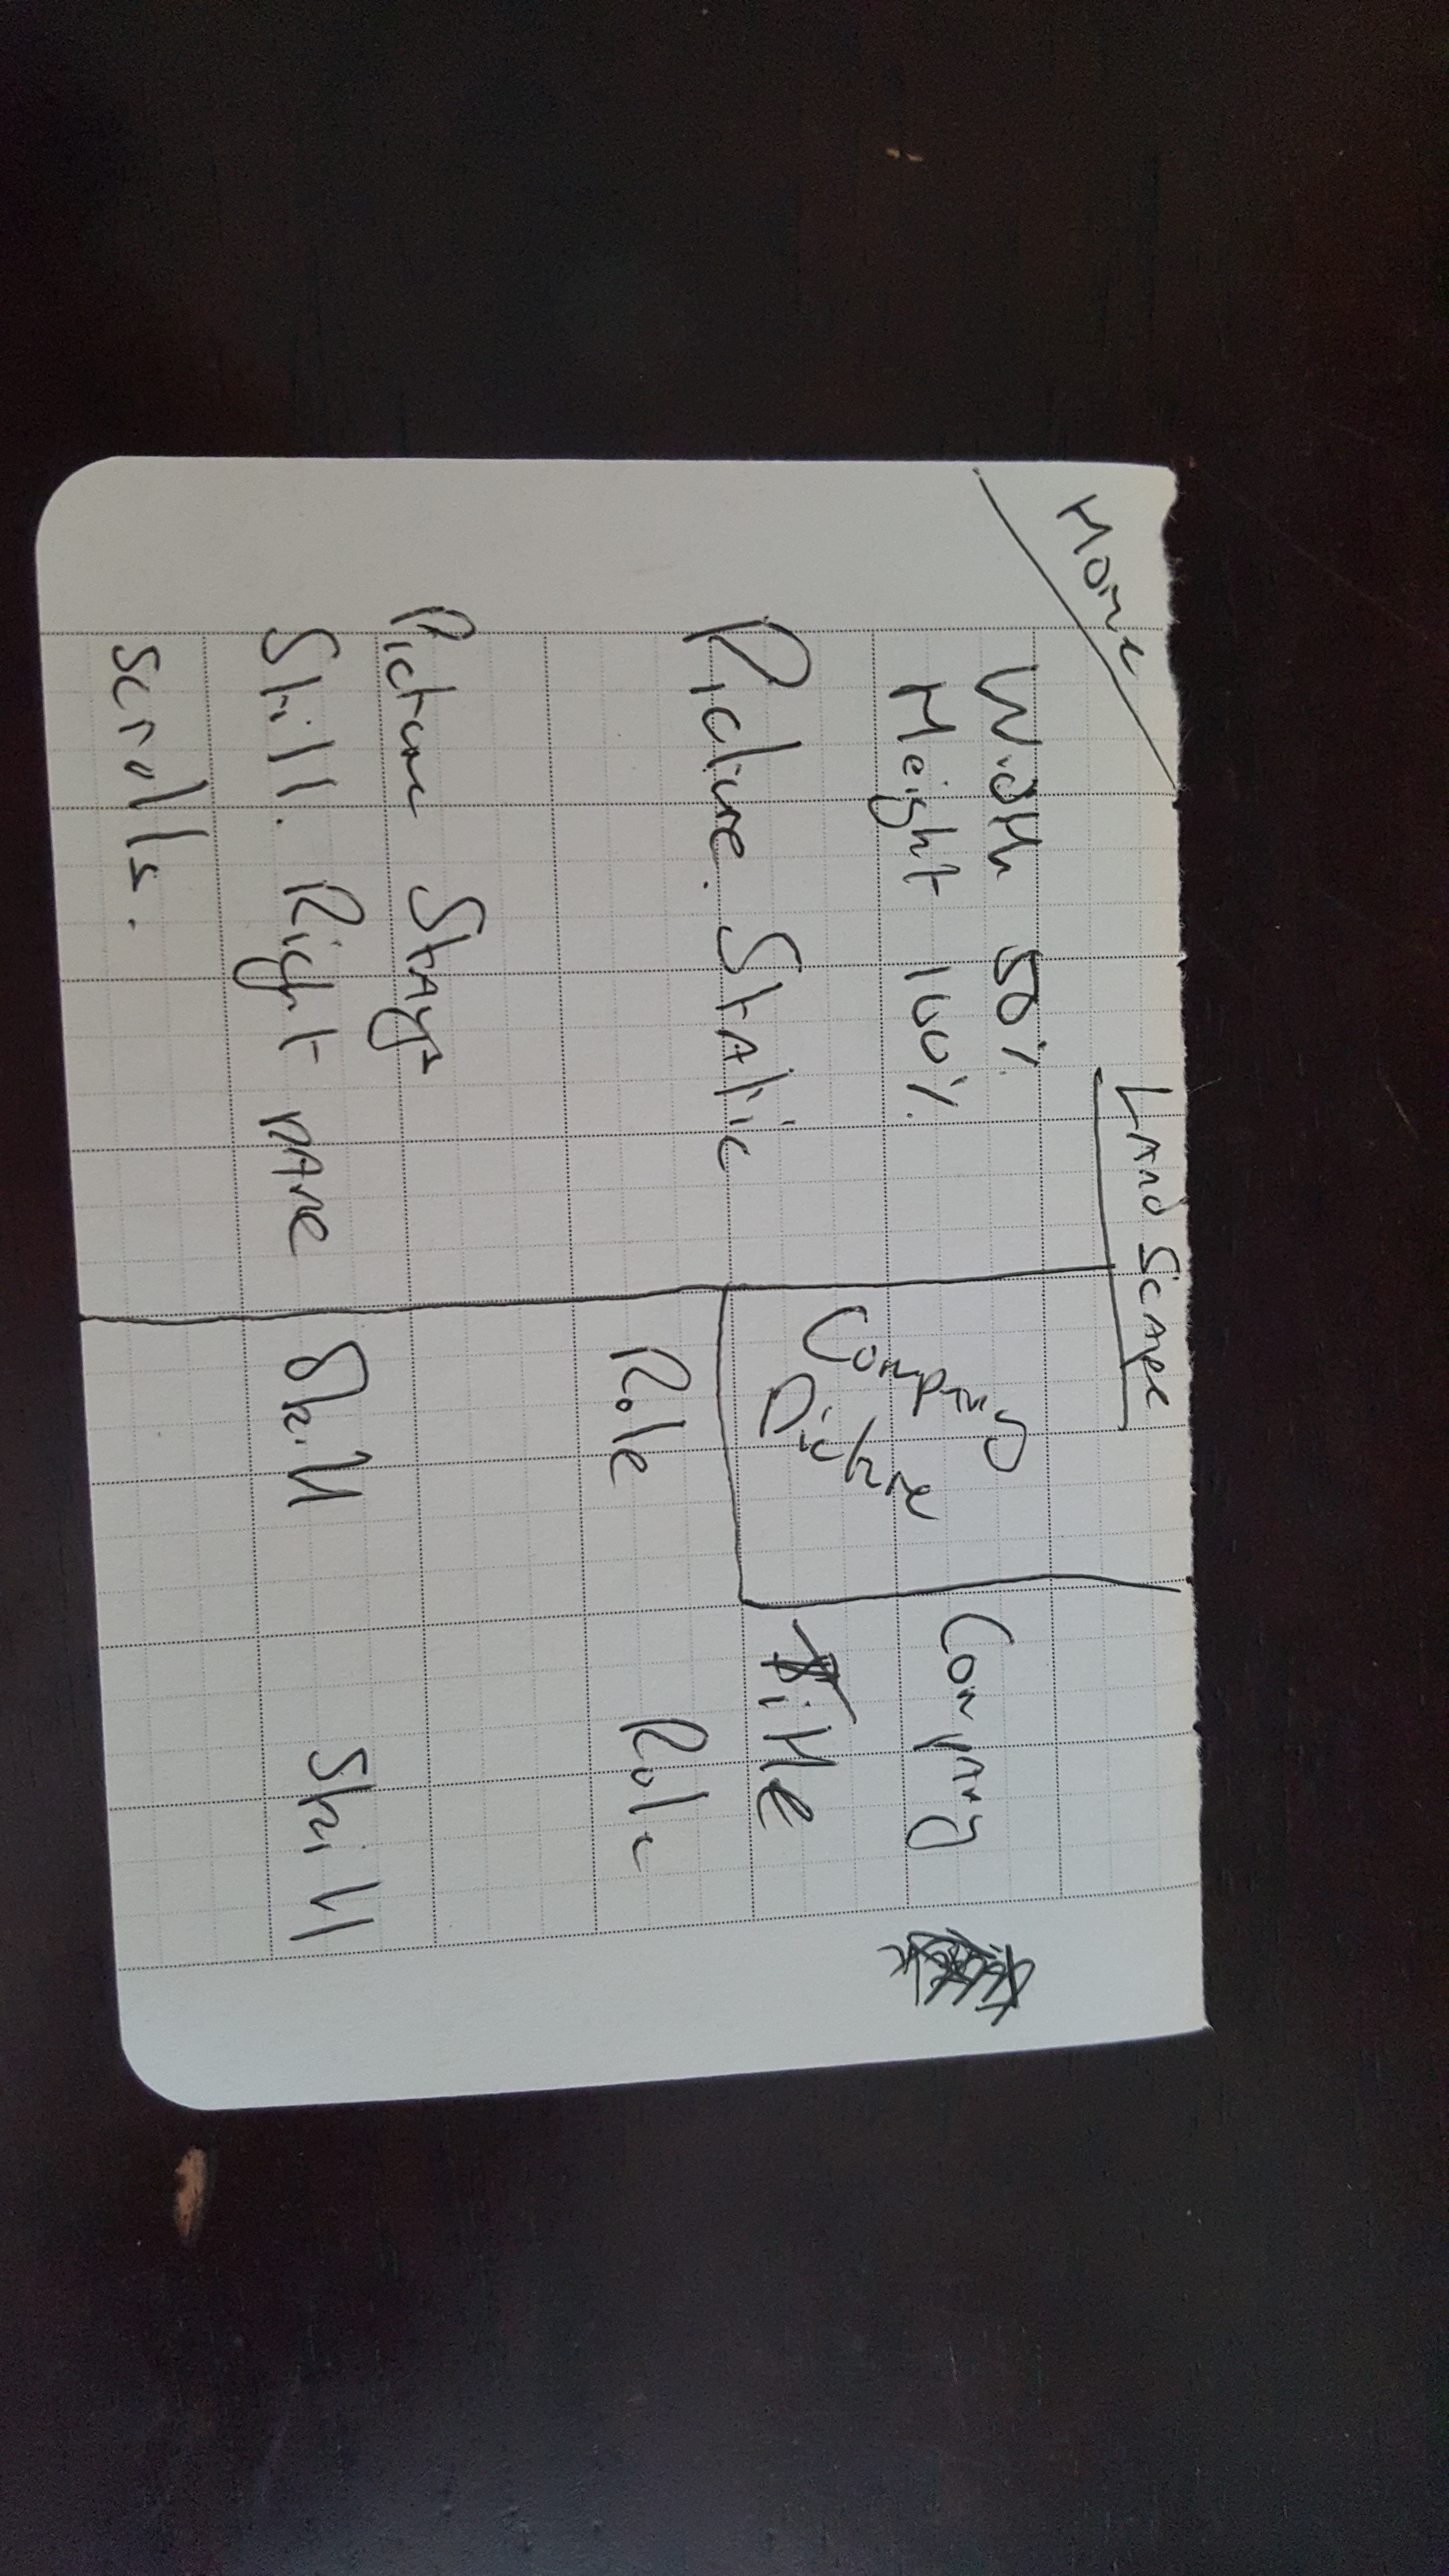 Home
Landscape
Width 50%
Height 100%
Picture. Static
Picture Stays
Still. Right pane
scrolls.
Company
Picture
Company
Title
Role
Role
Skill
Skill